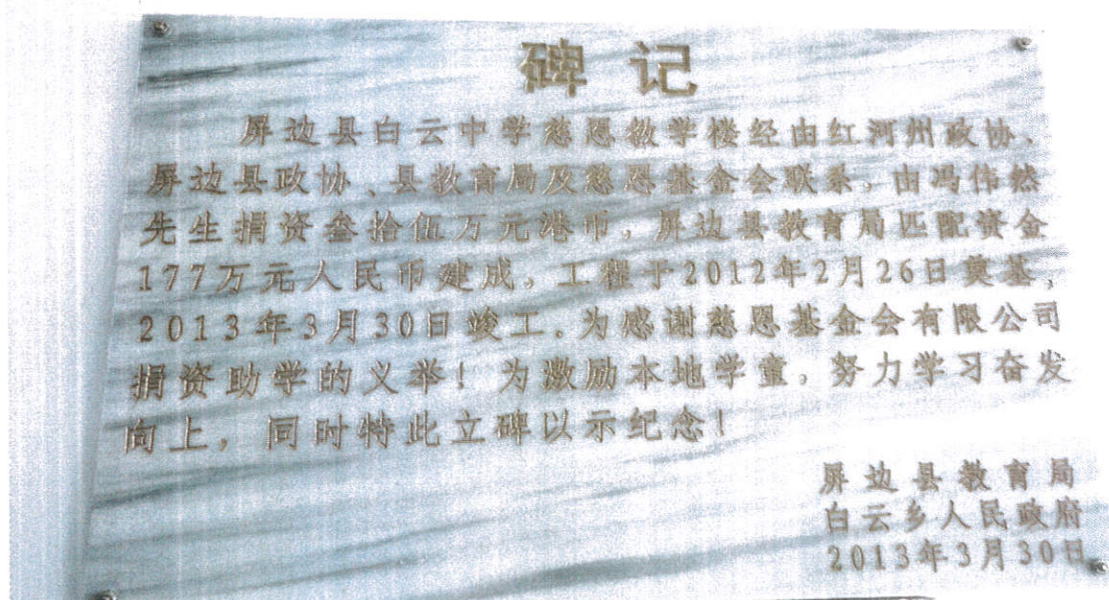 碑记
屏边县白云中学慈恩教学楼经由红河州政协、
屏边县政协、县教育局及慈恩基金会联系，由冯伟然
先生捐资叁拾伍万元港币，屏边县教育局匹配资金
177万元人民币建成。工程于2012年2月26日奠基，
2013年3月30日竣工。为感谢慈恩基金会有限公司
捐资助学的义举！为激励本地学童，努力学习奋发
向上，同时特此立碑以示纪念！
屏边县教育局
白云乡人民政府
2013年3月30日